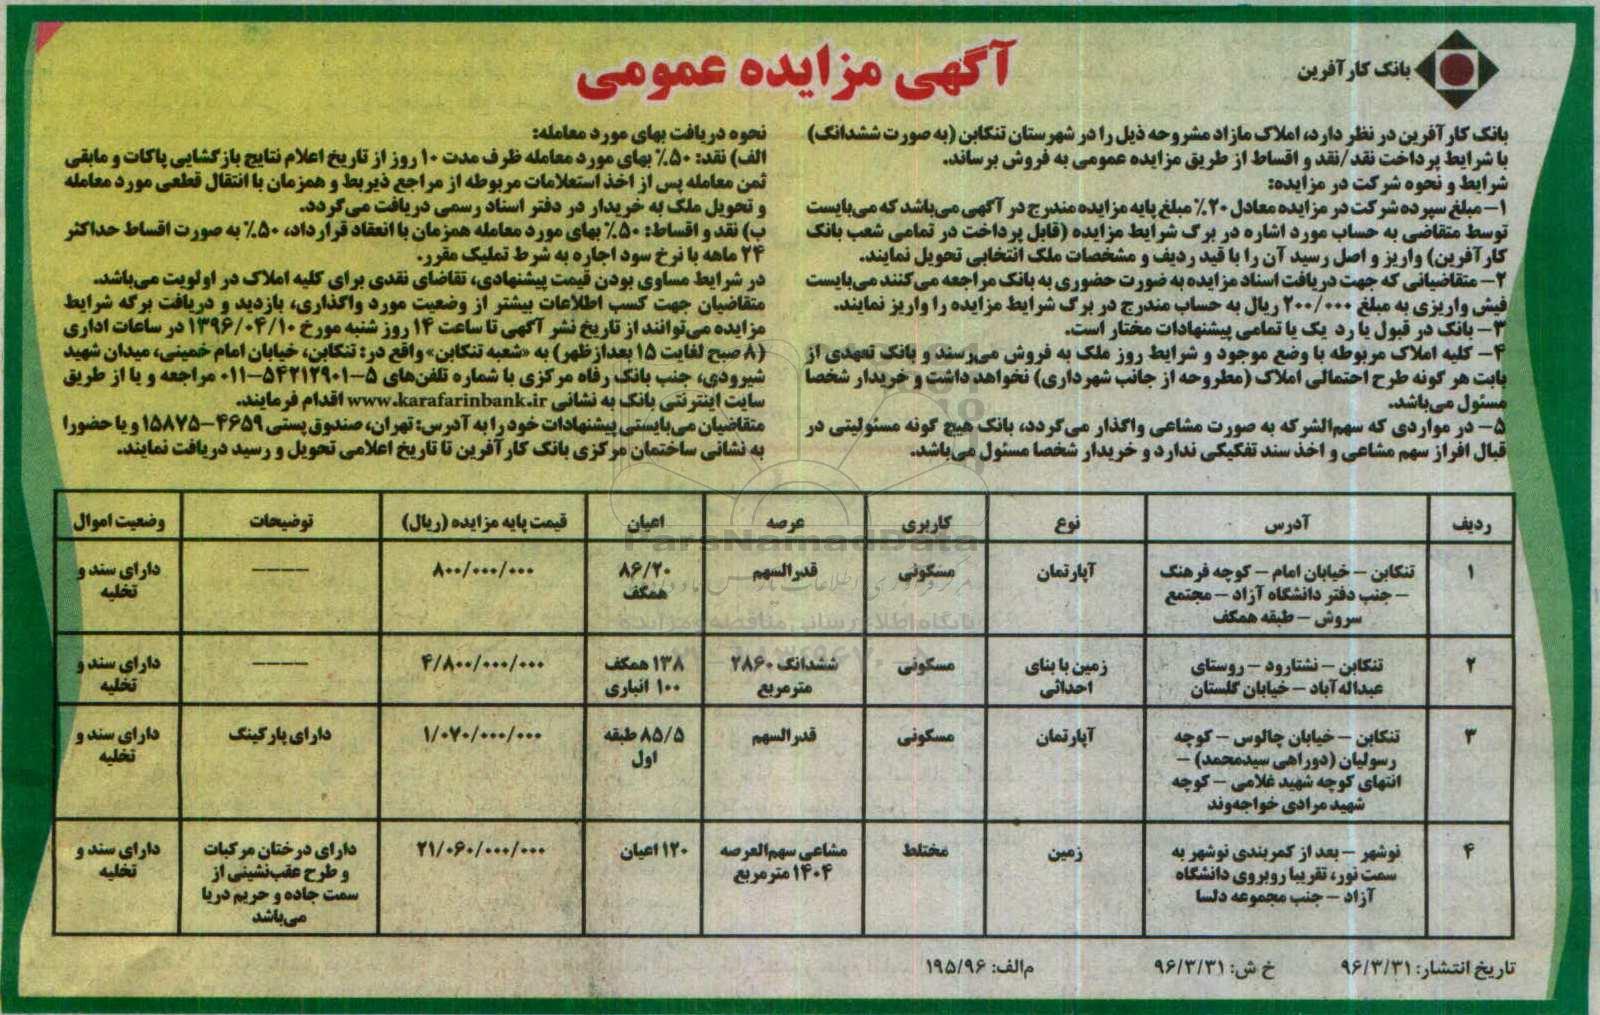 بانک کارآفرین
آگهی مزایده عمومی
بانک کارآفرین در نظر دارد، املاک مازاد مشروحه ذیل را در شهرستان تنکابن (به صورت ششدانگ)
با شرایط پرداخت نقد/نقد و اقساط از طریق مزایده عمومی به فروش برساند.
شرایط و نحوه شرکت در مزایده:
۱- مبلغ سپرده شرکت در مزایده معادل ۲۰٪ مبلغ پایه مزایده مندرج در آگهی می‌باشد که می‌بایست
توسط متقاضی به حساب مورد اشاره در برگ شرایط مزایده (قابل پرداخت در تمامی شعب بانک
کارآفرین) واریز و اصل رسید آن را با قید ردیف و مشخصات ملک انتخابی تحویل نمایند.
۲- متقاضیانی که جهت دریافت اسناد مزایده به صورت حضوری به بانک مراجعه می‌کنند می‌بایست
فیش واریزی به مبلغ ۲۰۰/۰۰۰ ریال به حساب مندرج در برگ شرایط مزایده را واریز نمایند.
۳- بانک در قبول یا رد یک یا تمامی پیشنهادات مختار است.
۴- کلیه املاک مربوطه با وضع موجود و شرایط روز ملک به فروش می‌رسند و بانک تعهدی از
بابت هر گونه طرح احتمالی املاک (مطروحه از جانب شهرداری) نخواهد داشت و خریدار شخصا
مسئول می‌باشد.
۵- در مواردی که سهم‌الشرکه به صورت مشاعی واگذار می‌گردد، بانک هیچ گونه مسئولیتی در
قبال افراز سهم مشاعی و اخذ سند تفکیکی ندارد و خریدار شخصا مسئول می‌باشد.
نحوه دریافت بهای مورد معامله:
الف) نقد: ۵۰٪ بهای مورد معامله ظرف مدت ۱۰ روز از تاریخ اعلام نتایج بازگشایی پاکات و مابقی
ثمن معامله پس از اخذ استعلامات مربوطه از مراجع ذیربط و همزمان با انتقال قطعی مورد معامله
و تحویل ملک به خریدار در دفتر اسناد رسمی دریافت می‌گردد.
ب) نقد و اقساط: ۵۰٪ بهای مورد معامله همزمان با انعقاد قرارداد، ۵۰٪ به صورت اقساط حداکثر
۲۴ ماهه با نرخ سود اجاره به شرط تملیک مقرر.
در شرایط مساوی بودن قیمت پیشنهادی، تقاضای نقدی برای کلیه املاک در اولویت می‌باشد.
متقاضیان جهت کسب اطلاعات بیشتر از وضعیت مورد واگذاری، بازدید و دریافت برگه شرایط
مزایده می‌توانند از تاریخ نشر آگهی تا ساعت ۱۴ روز شنبه مورخ ۱۳۹۶/۰۴/۱۰ در ساعات اداری
(۸ صبح لغایت ۱۵ بعدازظهر) به «شعبه تنکابن» واقع در: تنکابن، خیابان امام خمینی، میدان شهید
شیرودی، جنب بانک رفاه مرکزی با شماره تلفن‌های ۵-۵۴۲۱۲۹۰۱-۰۱۱ مراجعه و یا از طریق
سایت اینترنتی بانک به نشانی www.karafarinbank.ir اقدام فرمایند.
متقاضیان می‌بایستی پیشنهادات خود را به آدرس: تهران، صندوق پستی ۴۶۵۹-۱۵۸۷۵ و یا حضورا
به نشانی ساختمان مرکزی بانک کارآفرین تا تاریخ اعلامی تحویل و رسید دریافت نمایند.
ردیف آدرس نوع کاربری عرصه اعیان قیمت پایه مزایده (ریال) توضیحات وضعیت اموال
۱ تنکابن - خیابان امام - کوچه فرهنگ آپارتمان مسکونی قدرالسهم ۸۶/۲۰ ۸۰۰/۰۰۰/۰۰۰ ---- دارای سند و
- جنب دفتر دانشگاه آزاد - مجتمع همکف تخلیه
سروش - طبقه همکف
۲ تنکابن - نشتارود - روستای زمین با بنای مسکونی ششدانگ ۲۸۶۰ ۱۳۸ همکف ۴/۸۰۰/۰۰۰/۰۰۰ ---- دارای سند و
عبداله‌آباد - خیابان گلستان احداثی مترمربع ۱۰۰ انباری تخلیه
۳ تنکابن - خیابان چالوس - کوچه آپارتمان مسکونی قدرالسهم ۸۵/۵ طبقه ۱/۰۷۰/۰۰۰/۰۰۰ دارای پارکینگ دارای سند و
رسولیان (دوراهی سیدمحمد) - اول تخلیه
انتهای کوچه شهید غلامی - کوچه
شهید مرادی خواجه‌وند
۴ نوشهر - بعد از کمربندی نوشهر به زمین مختلط مشاعی سهم‌العرصه ۱۲۰ اعیان ۲۱/۰۶۰/۰۰۰/۰۰۰ دارای درختان مرکبات دارای سند و
سمت نور، تقریبا روبروی دانشگاه ۱۴۰۴ مترمربع و طرح عقب‌نشینی از تخلیه
آزاد - جنب مجموعه دلسا سمت جاده و حریم دریا
می‌باشد
ParsNamadData
پایگاه اطلاع رسانی مناقصه و مزایده
تاریخ انتشار: ۹۶/۳/۳۱ خ ش: ۹۶/۳/۳۱ م‌الف: ۱۹۵/۹۶